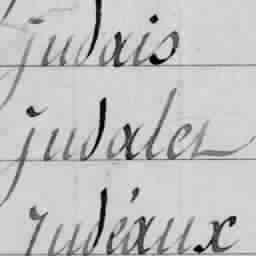 judais
judales
judéaux